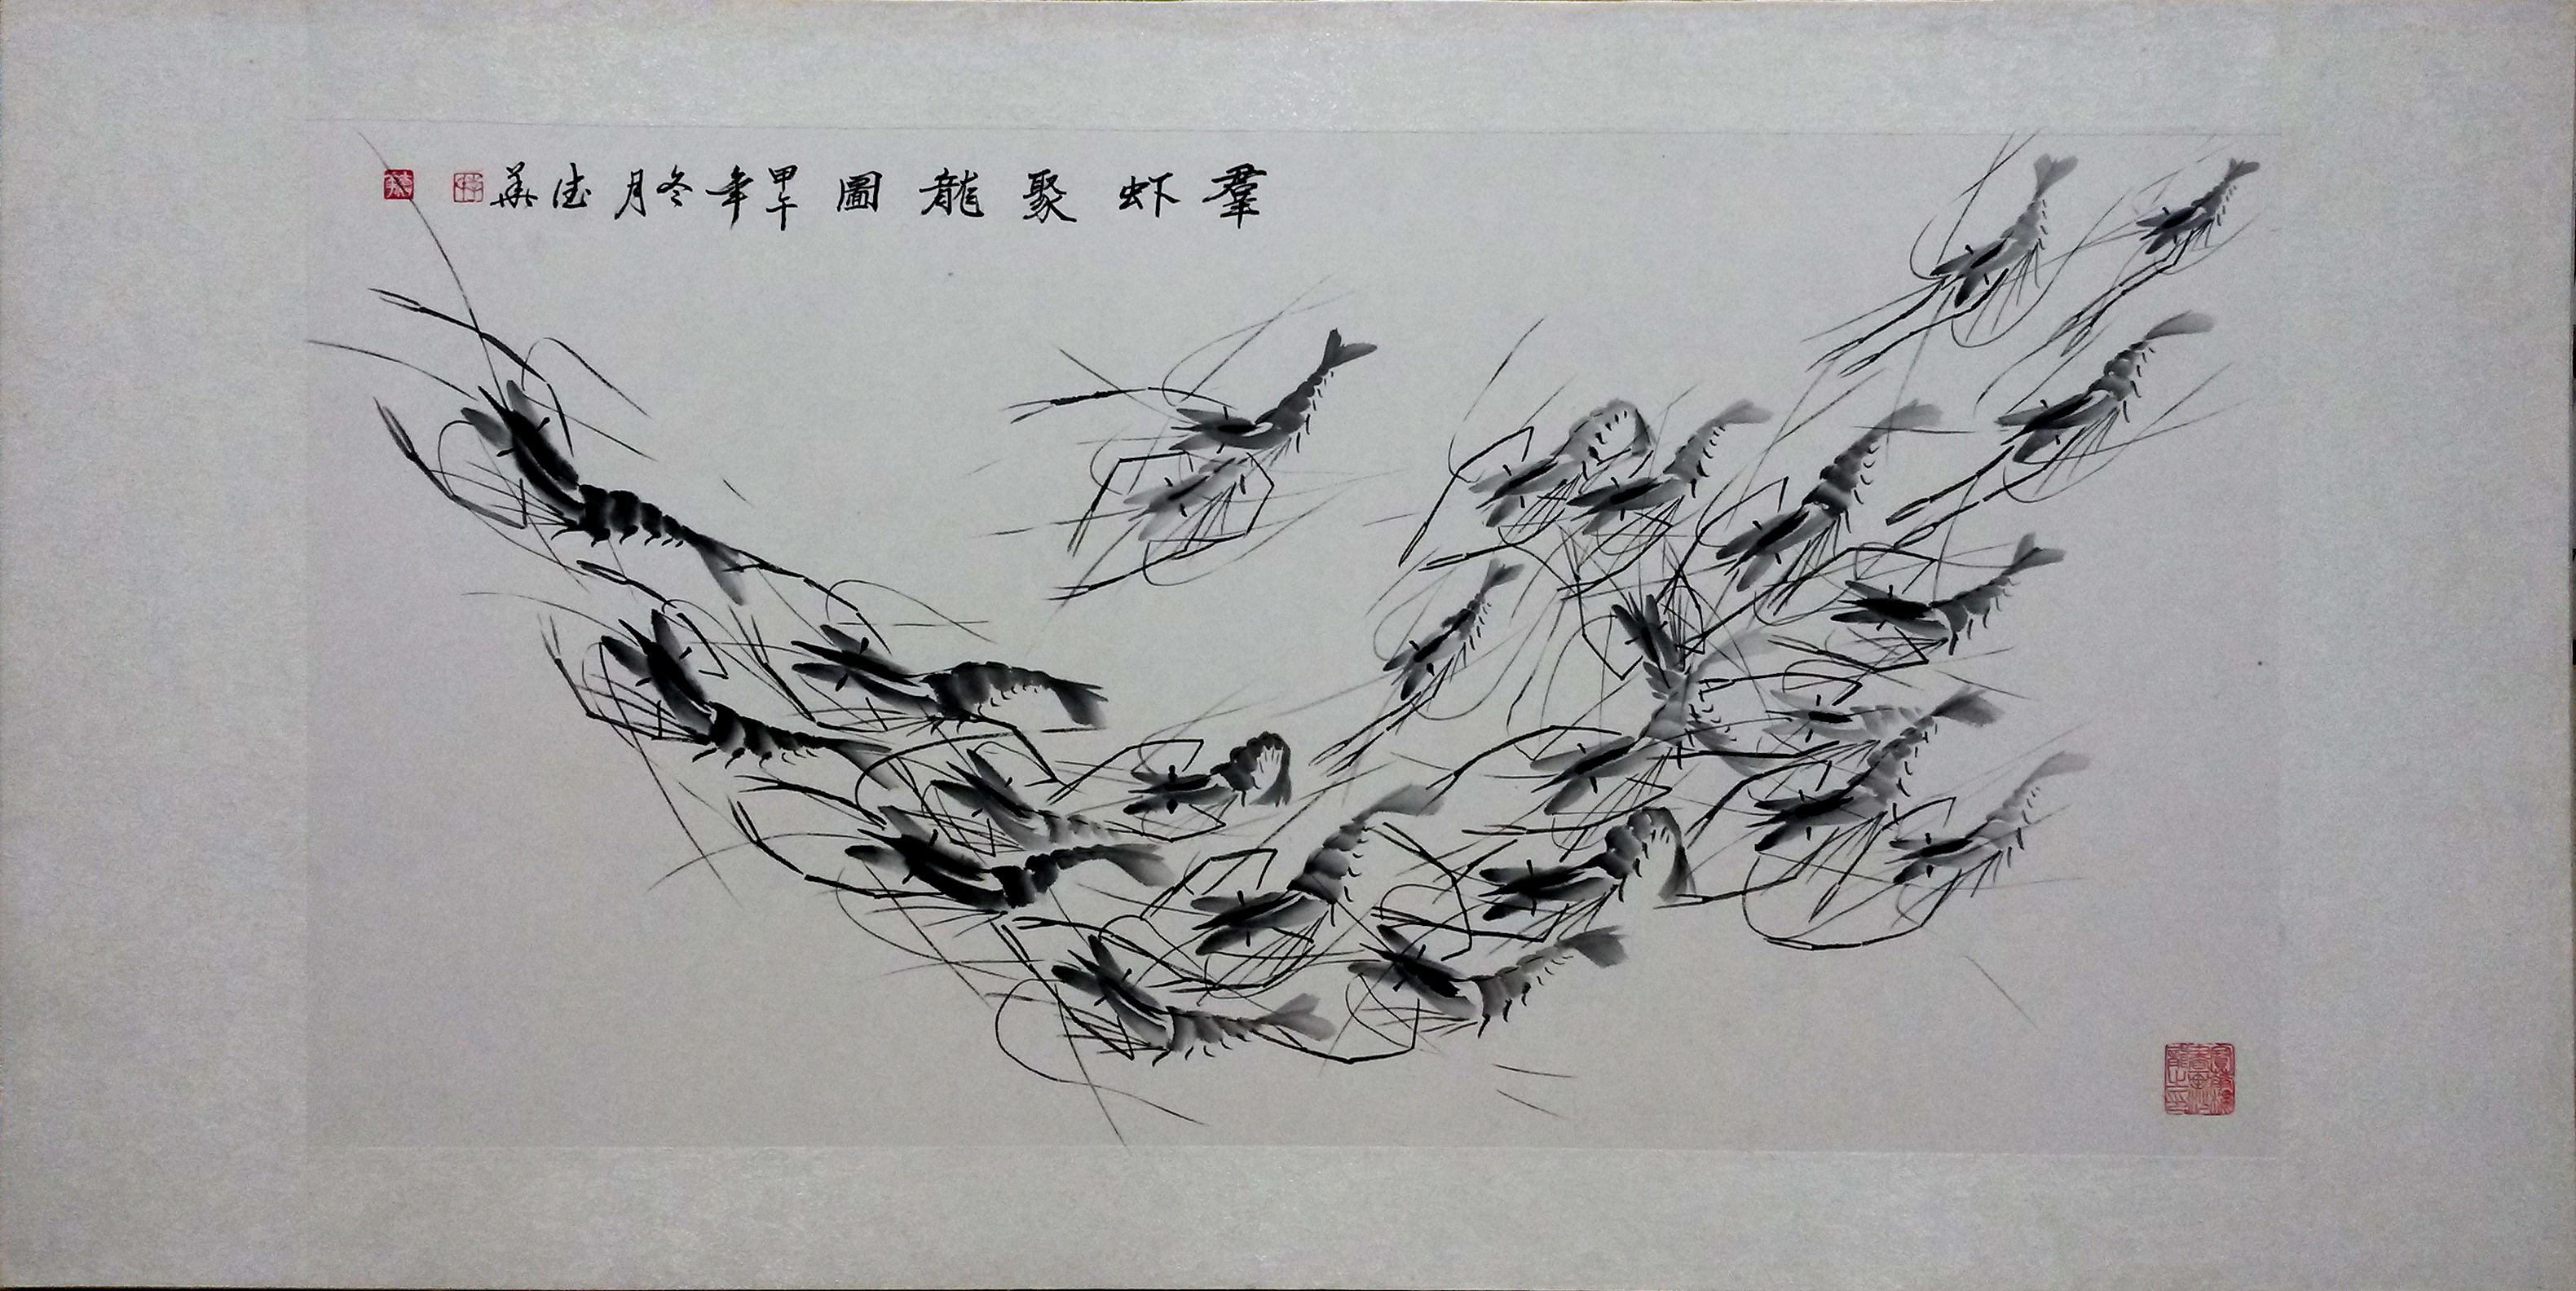 羣虾聚龍圖甲午年冬月德華